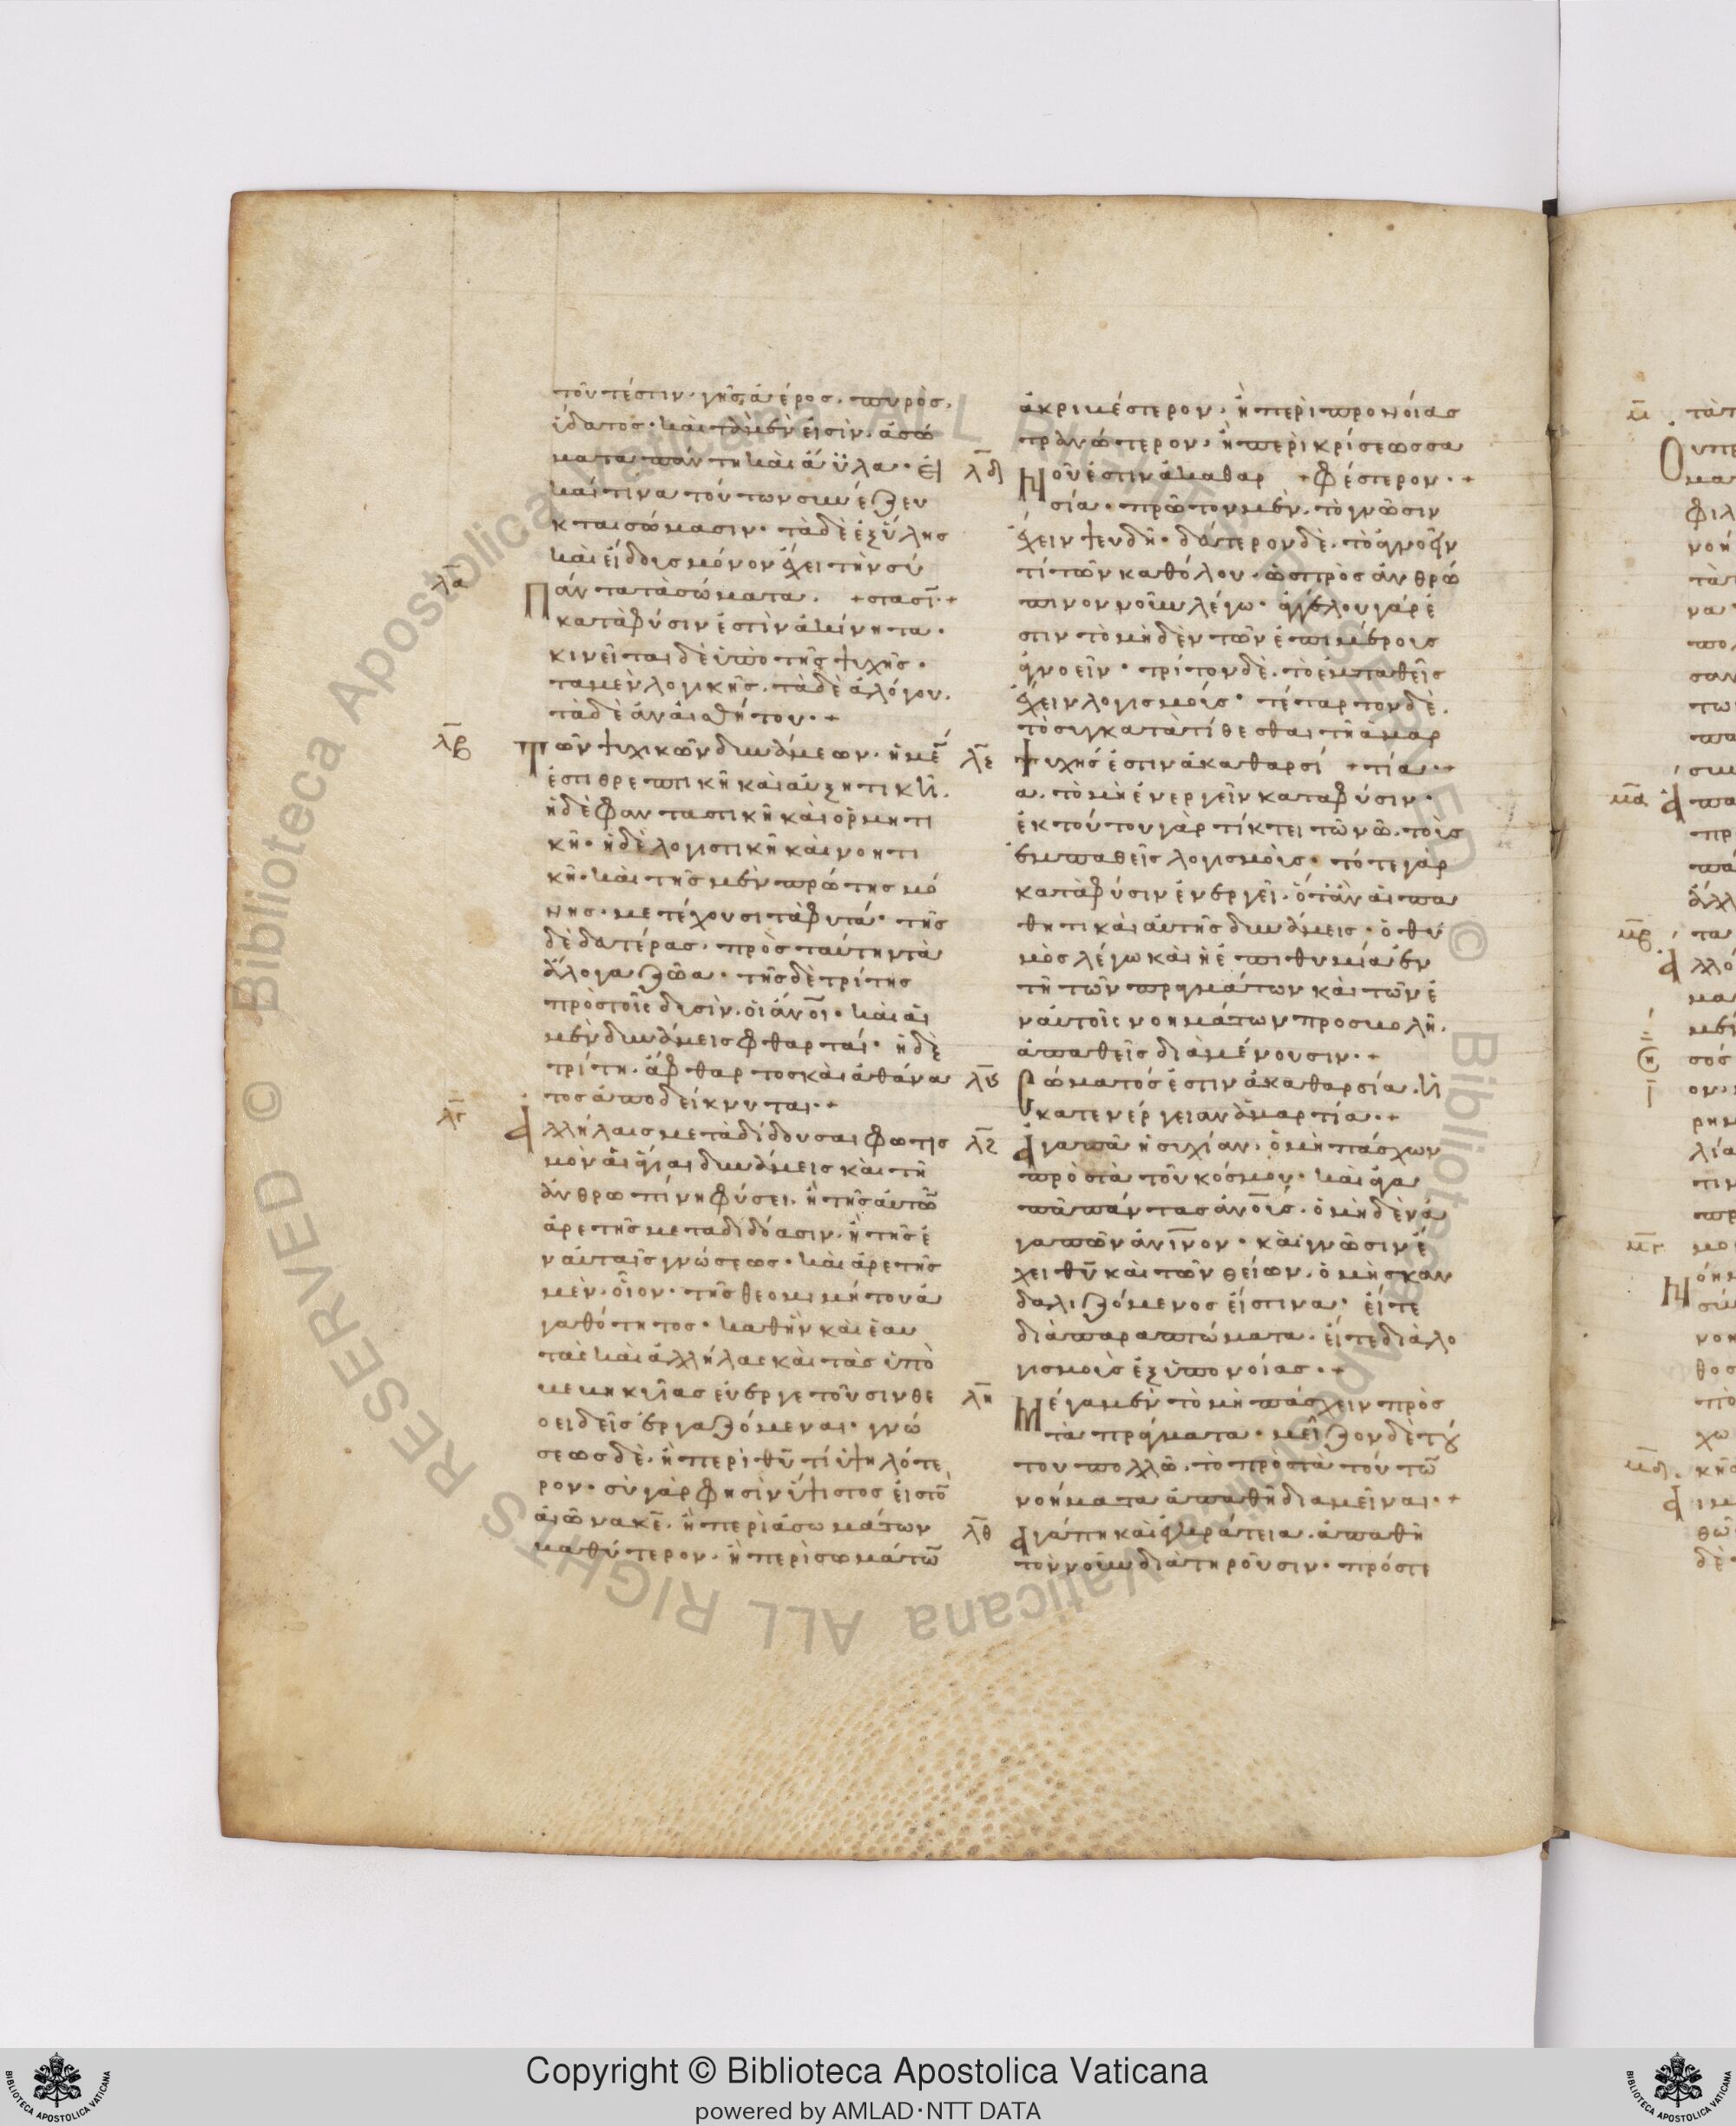 τουτέστιν· γῆς, ἀέρος, πυρὸς,
ὕδατος· καὶ τὰ μὲν εἰσὶν, ἀσώ
ματα πάντη καὶ ἄϋλα· εἰ
καί τινα τούτων συνέζευ
κται σώμασιν· τὰ δὲ ἐξ ὕλης
καὶ εἴδους μόνον ἔχει τὴν σύ
λα
Πάντα τὰ σώματα, +στασϊ·+
κατὰ φύσιν ἐστὶν ἀκίνητα·
κινεῖται δὲ ὑπὸ τῆς ψυχῆς·
τα μὲν λογικῆς, τὰ δὲ ἀλόγου,
τὰ δὲ ἀναισθήτου·+
λβ
Τῶν ψυχικῶν δυνάμεων, ἡ μέ
ἐστι θρεπτικὴ καὶ αὐξητικὴ,
ἡ δὲ φανταστικὴ καὶ ὁρμητι
κὴ· ἡ δὲ λογιστικὴ καὶ νοητι
κὴ· καὶ τῆς μὲν πρώτης μό
νης, μετέχουσι τὰ φυτά· τῆς
δὲ δατέρας, πρὸς ταύτην τὰ
ἄλογα ζῶα· τῆς δὲ τρίτης
πρὸς τοῖς δυσὶν, οἱ ἄνοι· καὶ αἱ
μὲν δυνάμεις φθαρταί· ἡ δὲ
τρίτη, ἄφθαρτος καὶ ἀθάνα
τος ἀποδείκνυται·+
λγ
Ἀλλήλαις μεταδίδουσαι φωτισ
μὸν αἱ ἅγιαι δυνάμεις καὶ τῆ
ἀνθρωπίνη φύσει, ἢ τῆς αὐτῶ
ἀρετῆς μεταδιδόασιν, ἢ τῆς ἐ
ν αὐταῖς γνώσεως· καὶ ἀρετῆς
μὲν, οἷον· τῆς θεομιμήτου ἀ
γαθότητος· καθ' ἣν καὶ ἑαυ
τὰς καὶ ἀλλήλας καὶ τὰς ὑπὸ
εὐεργετοῦσιν θε
οειδεῖς ἐργαζόμεναι· γνώ
σεως δὲ, ἢ περὶ θυ τί ὑψηλότε
ρον· σὺ γὰρ φησὶν ὕψιστος εἰς τὸ
αἰῶνα κε, ἢ περὶ ἀσωμάτων
βαθύτερον, ἢ περὶ σωμάτω
ἀκριβέστερον, ἢ περὶ προνοίας
τρανώτερον, ἢ περὶ κρίσεως σα
λδ
Νοῦ ἐστὶν ἀκαθαρ +φέστερον·+
σία· πρῶτον μὲν, τὸ γνῶσιν
ἔχειν ψευδῆ· δεύτερον δὲ, τὸ ἀγνοεῖν
τί τῶν καθόλου· ὡς πρὸς ἀνθρώ
πινον νοῦν λέγω· ἀγγέλου γάρ ἐ
στιν τὸ μηδὲν τῶν ἐπὶ μέρους
ἀγνοεῖν· τρίτον δὲ, τὸ ἐμπαθεῖς
ἔχειν λογισμούς· τέταρτον δὲ,
τὸ συγκατατίθεσθαι τῆ ἁμαρ
λε
Ψυχῆς ἐστὶν ἀκαθαρσί +τία·+
α, τὸ μὴ ἐνεργεῖν κατα φύσιν·
ἐκ τούτου γὰρ τίκτει τῶ νῶ, τοὺς
ἐμπαθεῖς λογισμούς· τότε γὰρ
κατὰ φύσιν ἐνεργεῖ, ὅτ' ἂν αἱ πα
θητικαὶ αὐτῆς δυνάμεις, ὁ θυ
μὸς λέγω καὶ ἡ ἐπιθυμία ἐν
τῆ τῶν πραγμάτων καὶ τῶν ἐ
ν αὐτοῖς νοημάτων προσβολῆ,
ἀπαθεῖς διαμένουσιν·+
λϛ
Σώματός ἐστιν ἀκαθαρσία, ἡ
κατ' ἐνέργειαν ἁμαρτία·+
λζ
Ἀγαπᾶ ἡσυχίαν, ὁ μὴ πάσχων
πρὸς τὰ τοῦ κόσμου· καὶ ἀγα
πᾶ πάντας ἀνους, ὁ μηδὲν ἀ
γαπῶν ἀνινον· καὶ γνῶσιν ἔ
χει θυ καὶ τῶν θείων, ὁ μὴ σκαν
δαλιζόμενος εἴς τινα· εἴτε
διὰ παραπτώματα, εἴτε διὰ λο
γισμοὺς ἐξ ὑπονοίας·+
λη
Μέγα μὲν τὸ μὴ πάσχειν πρὸς
τὰ πράγματα· μεῖζον δὲ τού
του πολλῶ, τὸ πρὸς τὰ τούτω
νοήματα ἀπαθῆ διαμεῖναι·+
λθ
Ἀγάπη καὶ ἐγκράτεια, ἀπαθῆ
τὸν νοῦν διατηροῦσιν· πρός τε
Copyright © Biblioteca Apostolica Vaticana
powered by AMLAD·NTT DATA